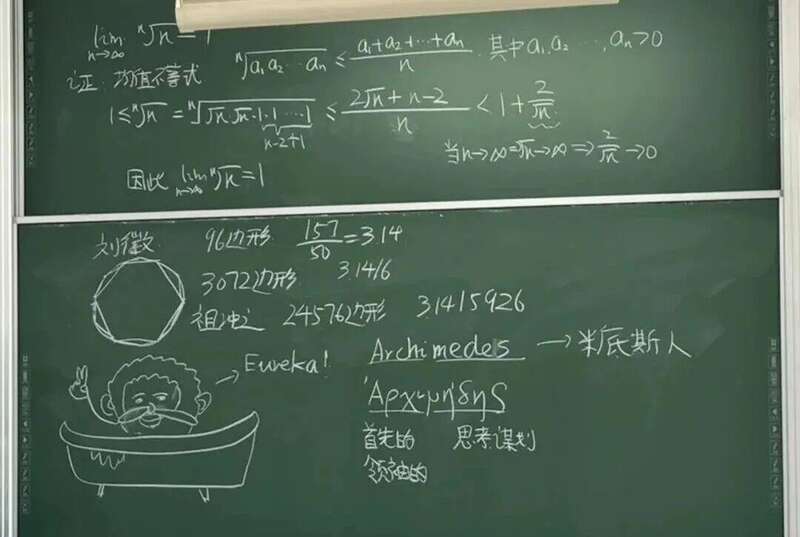 lim n→∞ ⁿ√n = 1
ⁿ√(a₁a₂⋯aₙ) ≤ (a₁+a₂+⋯+aₙ)/n 其中a₁,a₂⋯,aₙ>0
证: 均值不等式
1 ≤ ⁿ√n = ⁿ√(√n·√n·1·1⋯1) ≤ (2√n+n-2)/n < 1+2/√n
n-2个1
当n→∞ ⇒ √n→∞ ⇒ 2/√n→0
因此 lim n→∞ ⁿ√n = 1
刘徽 96边形 157/50 = 3.14
3072边形 3.1416
祖冲之 24576边形 3.1415926
Eureka!
Archimedes → 米底斯人
Ἀρχιμήδης
首先的 思考谋划
领袖的